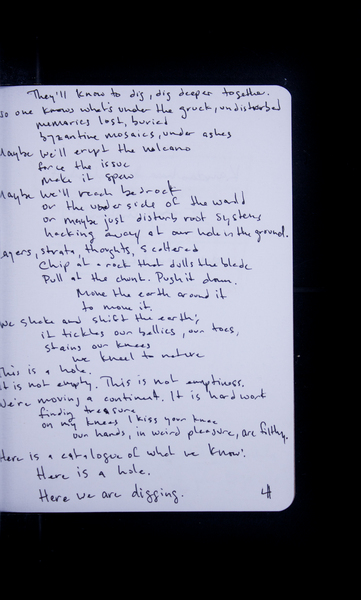 They'll know to dig, dig deeper together.
no one knows what's under the gruck, undisturbed
memories lost, buried
byzantine mosaics, under ashes
Maybe we'll erupt the volcano
force the issue
make it spew
Maybe we'll reach bedrock
or the underside of the world
or maybe just disturb root systems
hacking away at our hole in the ground.
ayers, strata, thoughts, scattered
Chip at a rock that dulls the blade
Pull at the chunk. Push it down.
Move the earth around it
to move it.
We shake and shift the earth;
it tickles our bellies, our toes,
stains our knees
we kneel to nature
This is a hole.
It is not empty. This is not emptiness.
We're moving a continent. It is hard work
finding treasure
on my knees I kiss your knee
our hands, in weird pleasure, are filthy.
Here is a catalogue of what we know:
Here is a hole.
Here we are digging.